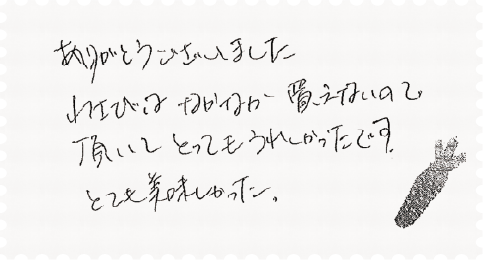 ありがとうございました
わさびは なかなか 買えないので
頂いて とってもうれしかったです。
とても美味しかった。